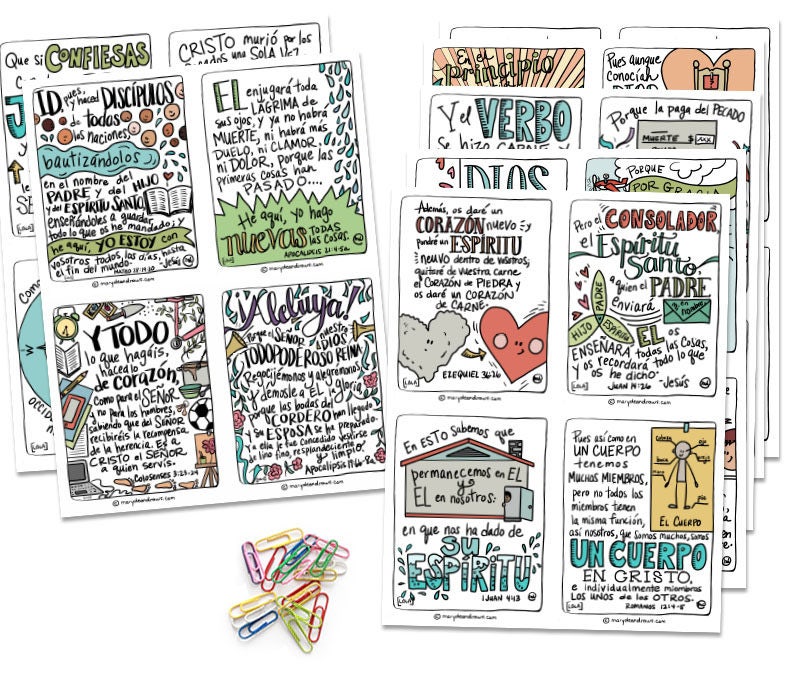 Que si CONFIESAS
CRISTO murió por los
ID, pues,
y haced DISCÍPULOS
de todas
las naciones,
bautizándolos
en el nombre del
PADRE y del HIJO
y del ESPÍRITU SANTO;
enseñándoles a guardar
todo lo que os he mandado; y
he aquí, YO ESTOY con
vosotros todos los días, hasta
el fin del mundo. -Jesús
MATEO 28:19-20
LOLA
© marydeandraws.com
EL enjugará toda
LÁGRIMA de
sus ojos, y ya no habrá
MUERTE, ni habrá más
DUELO, ni CLAMOR,
ni DOLOR, porque las
primeras cosas han
PASADO...
He aquí, yo hago
nuevas TODAS
las cosas.
APOCALIPSIS 21:4-5a
LOLA
© marydeandraws.com
Y TODO
lo que hagáis,
hacedlo
de corazón,
como para el SEÑOR
y no para los hombres,
sabiendo que del SEÑOR
recibiréis la recompensa
de la herencia. Es a
CRISTO el SEÑOR
a quien servís.
Colosenses 3:23-24
LOLA
© marydeandraws.com
¡Aleluya!
Porque el SEÑOR nuestro
DIOS
TODOPODEROSO REINA.
Regocijémonos y alegrémonos,
y démosle a ÉL la gloria,
porque las bodas del
CORDERO han llegado
y su ESPOSA se ha preparado.
Y a ella le fue concedido vestirse
de lino fino, resplandeciente
y limpio.
Apocalipsis 19:6b-8a
LOLA
© marydeandraws.com
En el
principio
Pues aunque
conocían
Y el VERBO
se hizo CARNE y
Porque la paga del PECADO
MUERTE $
DIOS
PORQUE
POR GRACIA
Además, os daré un
CORAZÓN nuevo y
pondré un ESPÍRITU
nuevo dentro de vosotros;
quitaré de vuestra carne
el CORAZÓN de PIEDRA y
os daré un CORAZÓN
de CARNE.
EZEQUIEL 36:26
LOLA
© marydeandraws.com
Pero el CONSOLADOR,
el Espíritu
Santo,
a quien el PADRE
enviará
en mi nombre,
PADRE
HIJO
ESPÍRITU
ÉL os
ENSEÑARÁ todas las cosas,
y os recordará todo lo que
os he dicho
JUAN 14:26 -Jesús
LOLA
© marydeandraws.com
En ESTO sabemos que
permanecemos en ÉL
y
ÉL en nosotros:
en que nos ha dado de
SU
ESPÍRITU
1 JUAN 4:13
LOLA
© marydeandraws.com
Pues así como en
UN CUERPO
tenemos
MUCHOS MIEMBROS,
pero no todos los
miembros tienen
la misma función,
así nosotros, que somos muchos, somos
UN CUERPO
EN CRISTO,
e individualmente miembros
LOS UNOS de los OTROS.
ROMANOS 12:4-5
cabeza
ojo
boca
mano
pie
EL CUERPO
LOLA
© marydeandraws.com